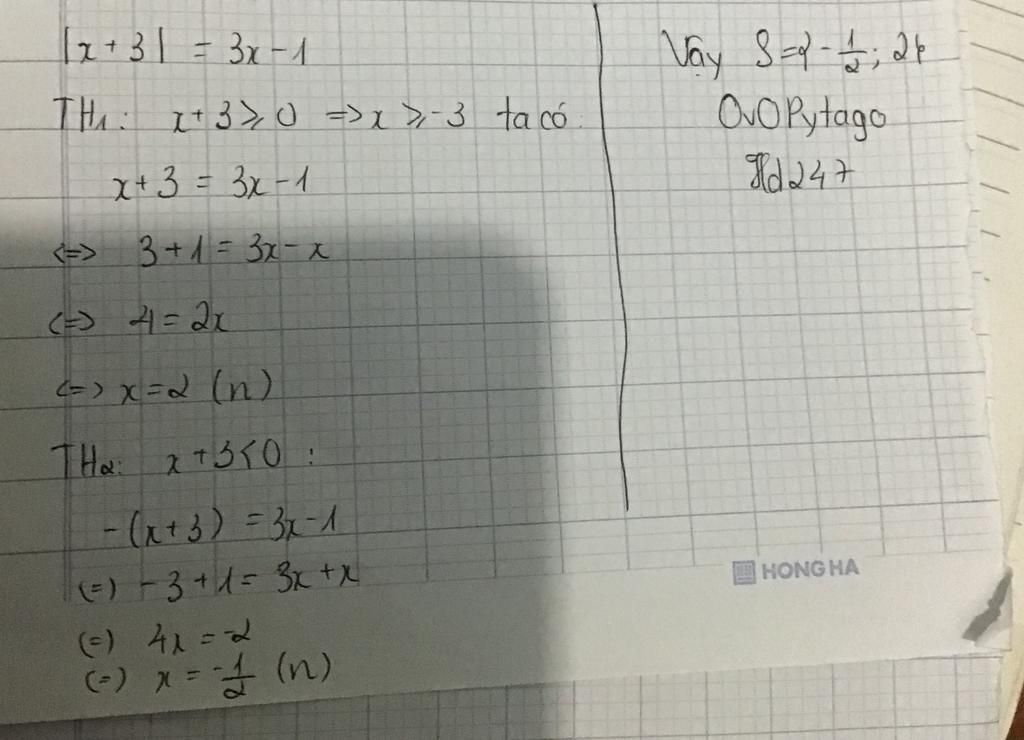 |x+3| = 3x-1
TH1: x+3 ≥ 0 => x ≥ -3 ta có:
x+3 = 3x-1
<=> 3+1 = 3x-x
<=> 4 = 2x
<=> x=2 (n)
TH2: x+3<0 :
-(x+3) = 3x-1
(=) -3+1 = 3x+x
(=) 4x = -2
(=) x = -1/2 (n)
Vậy S={-1/2; 2}
OvOPytago
Hd247
HONG HA